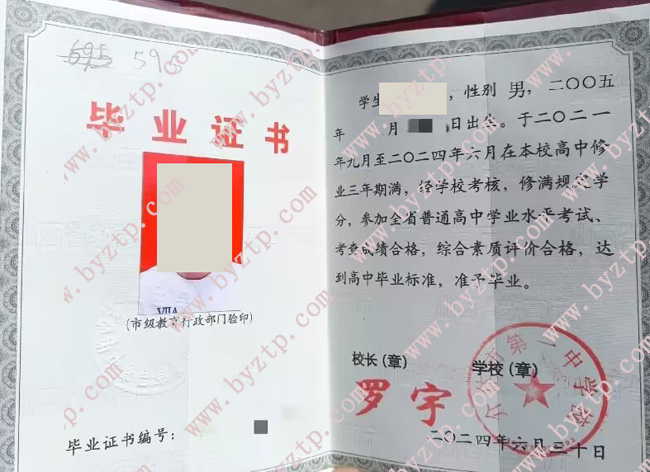 695 595
毕业证书
(市级教育行政部门验印)
毕业证书编号:
学生 ,性别 男,二〇〇五
年 月 日出生。于二〇二一
年九月至二〇二四年六月在本校高中修
业三年期满,经学校考核,修满规定学
分,参加全省普通高中学业水平考试、
考查成绩合格,综合素质评价合格,达
到高中毕业标准,准予毕业。
校长(章) 学校(章)
罗宇
市第一中学校
二〇二四年六月三十日
www.byztp.com